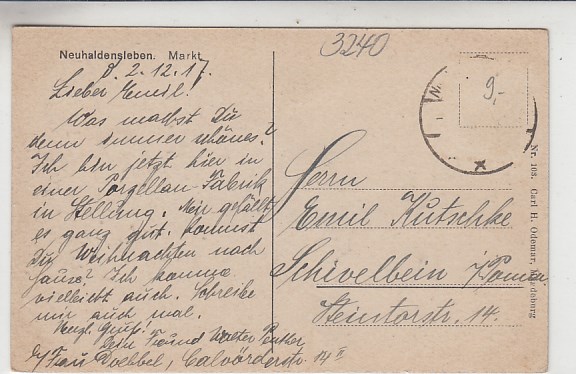 3240
Neuhaldensleben. Markt
d. 2.12.17.
Lieber Emil!
Was machst Du
denn immer schönes?
Ich bin jetzt hier in
einer Porzellan-Fabrik
in Stellung. Mir gefällt
es ganz gut. Kommst
Du Weihnachten nach
Hause? Ich komme
vielleicht auch. Schreibe
mir auch mal.
Herzl. Gruß!
Dein Freund Walter
b/Frau Doebbel, Calvörderstr. 14 II
9,-
N
Herrn
Emil Kutschke
Schivelbein /Pomm.
Steintorstr. 14.
Nr. 168. Carl H. Odemar, Magdeburg